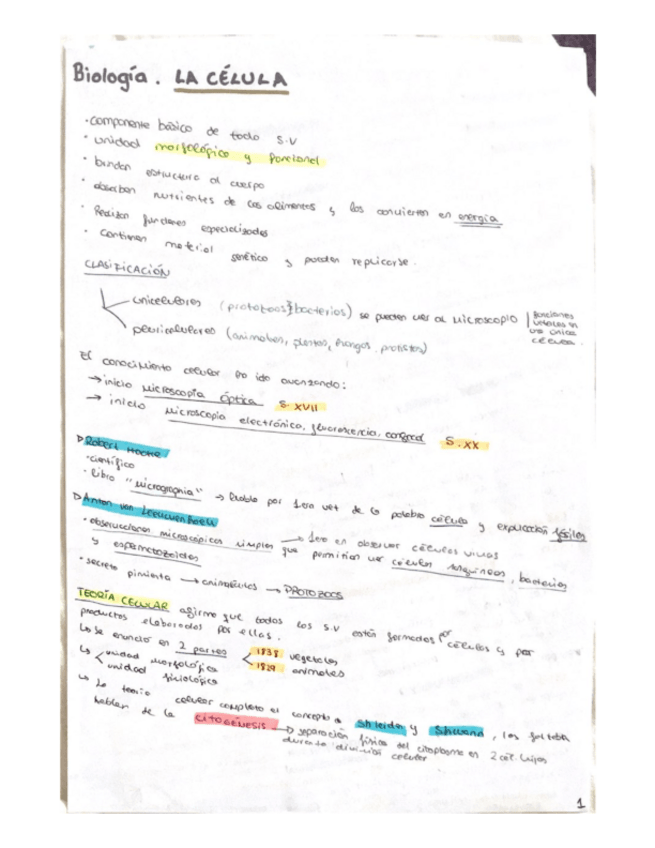 Biología. LA CÉLULA
· componente básico de todo S.V
· unidad morfológica y funcional
· brindan estructura al cuerpo
· absorben nutrientes de los alimentos y los convierten en energía
· Realizan funciones especializadas
· Contienen material genético y pueden replicarse.
CLASIFICACIÓN
unicelulares (protozoos y bacterias) se pueden ver al microscopio | funciones vitales en una única célula.
pluricelulares (animales, plantas, hongos, protistas)
El conocimiento celular ha ido avanzando:
→ inicio microscopía óptica S. XVII
→ inicio microscopía electrónica, fluorescencia, confocal S. XX
▷ Robert Hooke
· científico
· libro "micrographia" → habla por 1era vez de la palabra célula y explicación fósiles
▷ Anton van Leeuwenhoek
· observaciones microscópicas simples → 1ero en observar células vivas
que permitían ver células sanguíneas, bacterias
y espermatozoides
· secreto pimienta → animálculos → PROTOZOOS
TEORÍA CELULAR afirma que todos los S.V están formados por células y por
productos elaborados por ellas.
↳ Se enunció en 2 partes 1838 vegetales
1829 animales
↳ unidad morfológica
unidad fisiológica
↳ La teoría celular completa el concepto a Shleiden y Shwann, les faltaba
hablar de la CITOGÉNESIS → separación física del citoplasma en 2 cél. hijas
durante división celular
1